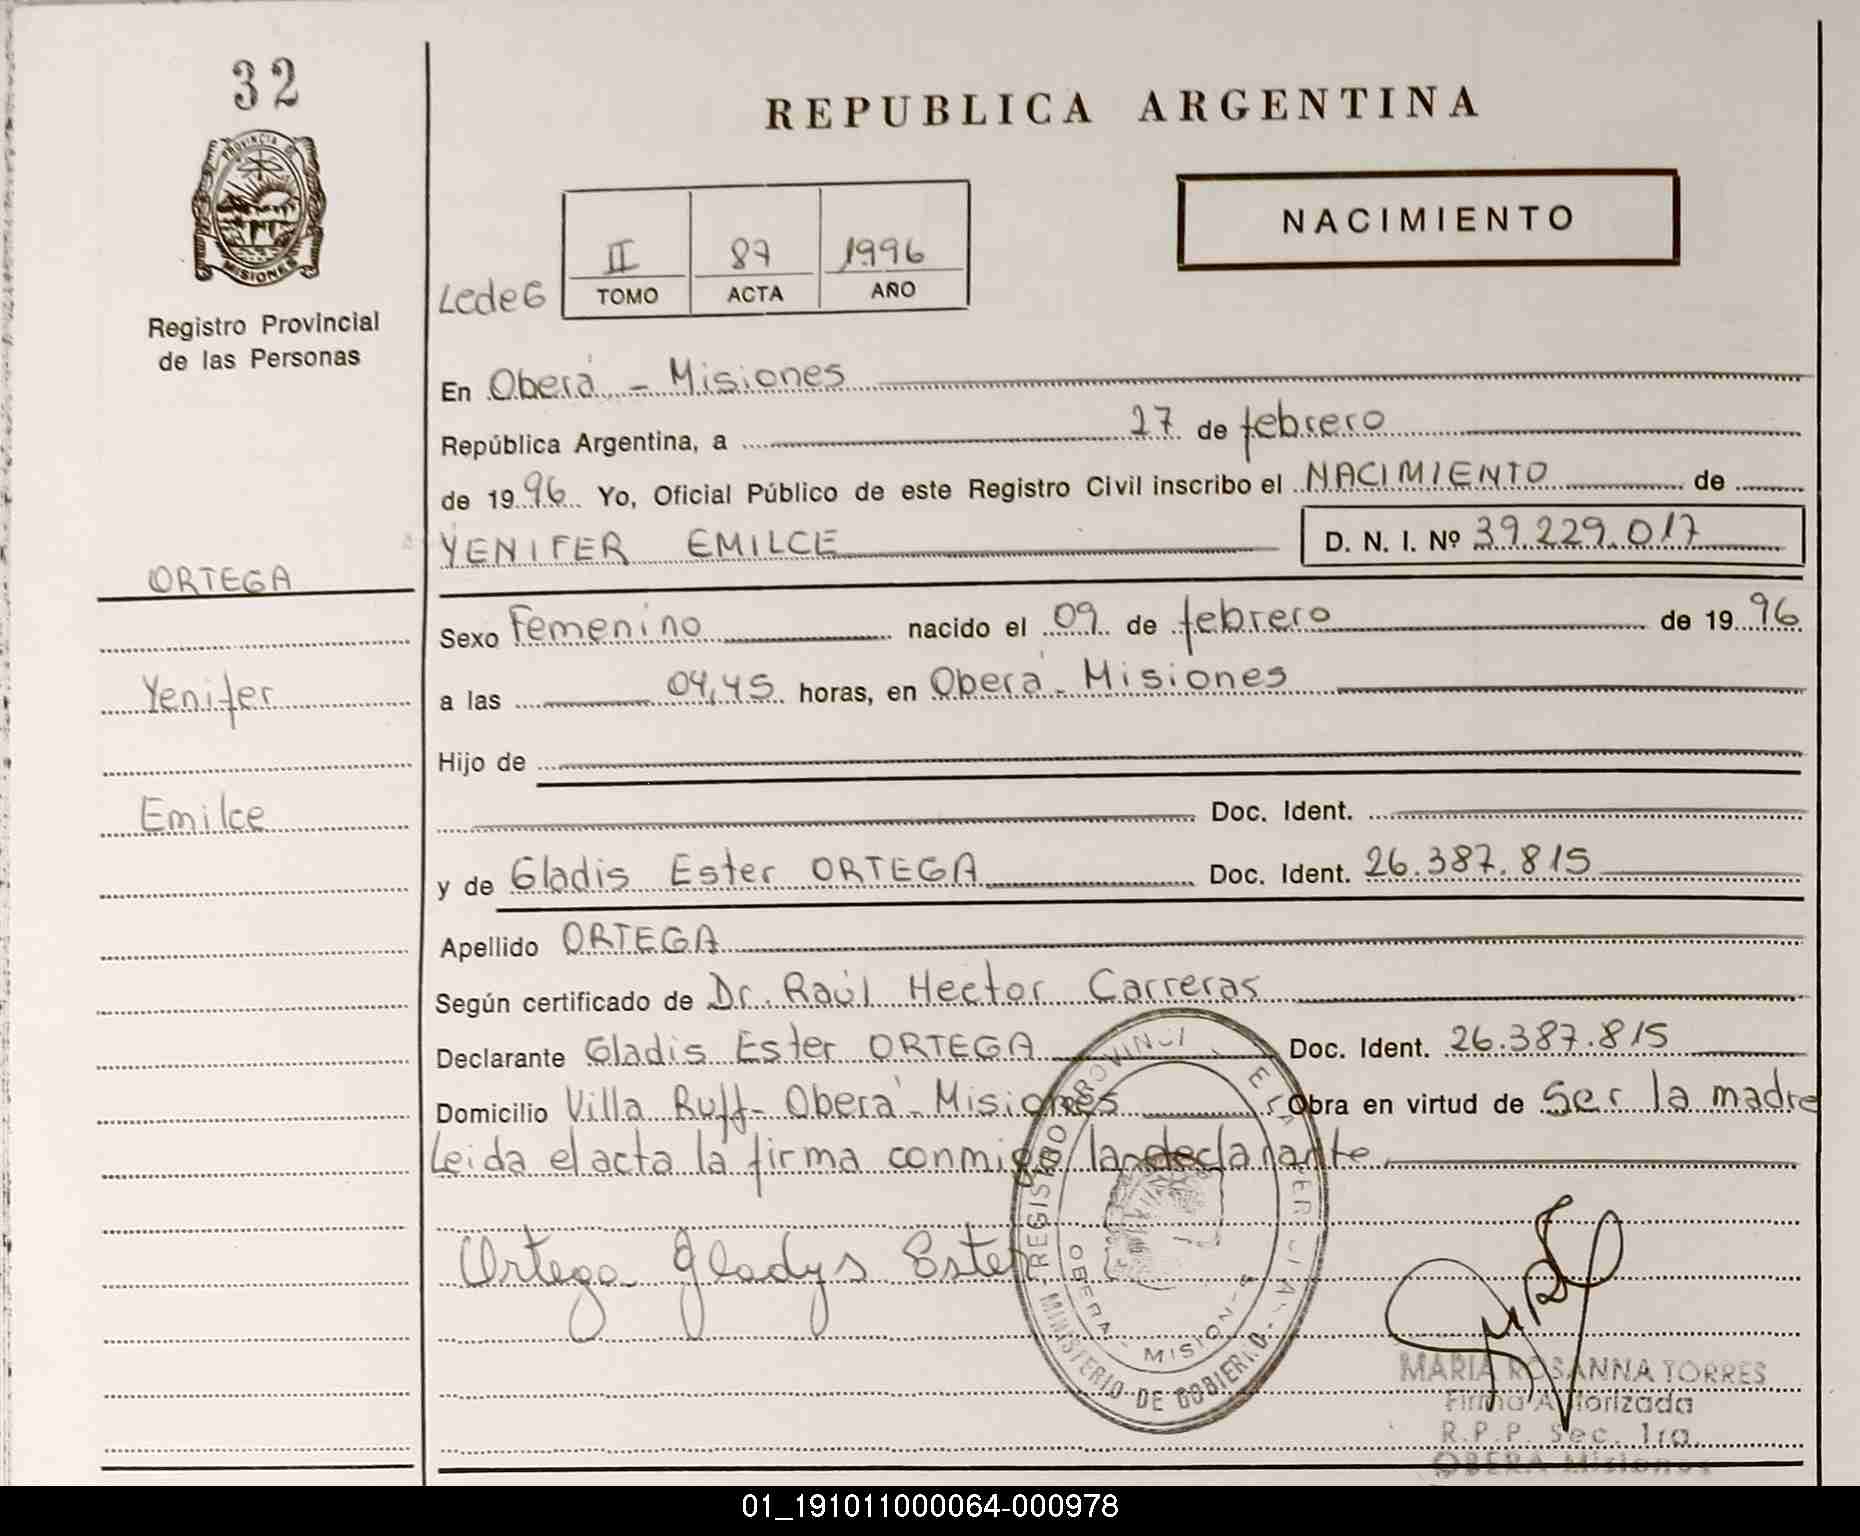 32
REPUBLICA ARGENTINA
PROVINCIA DE
MISIONES
Registro Provincial
de las Personas
NACIMIENTO
II 87 1996
TOMO ACTA AÑO
En Oberá - Misiones
República Argentina, a 27 de febrero
de 1996 Yo, Oficial Público de este Registro Civil inscribo el NACIMIENTO de
YENIFER EMILCE D. N. I. Nº 39.229.017
ORTEGA
Sexo Femenino nacido el 09 de febrero de 1996
Yenifer
a las 04,45 horas, en Oberá - Misiones
Hijo de
Emilce
Doc. Ident.
y de Gladis Ester ORTEGA Doc. Ident. 26.387.815
Apellido ORTEGA
Según certificado de Dr. Raúl Hector Carreras
Declarante Gladis Ester ORTEGA Doc. Ident. 26.387.815
Domicilio Villa Ruff - Oberá - Misiones Obra en virtud de Ser la madre
Leida el acta la firma conmigo la declarante
Ortega Gladys Ester
REGISTRO PROVINCI
MINISTERIO DE GOBIERNO
OBERA - MISIONES
MARIA ROSANNA TORRES
Firma Autorizada
R.P.P. Sec. 1ra.
OBERA Misiones
01_191011000064-000978